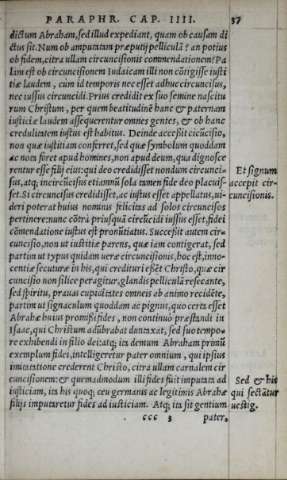 PARAPHR. CAP. IIII. 37
dictum Abraham, sed illud expediant, quam ob causam di
ctus sit. Num ob amputatam præputij pelliculã? an potius
ob fidem, citra ullam circuncisionis commendationem? Pa
lam est ob circuncisionem Iudaicam illi non cõtigisse iusti
tiæ laudem, cum id temporis nec esset adhuc circuncisus,
nec iussus circuncidi. Prius credidit ex suo semine nascitu
rum Christum, per quem beatitudinẽ hanc & paternam
iusticiæ laudem assequerentur omnes gentes, & ob hanc
credulitatem iustus est habitus. Deinde accessit cicũcisio,
non quæ iustitiam conferret, sed quæ symbolum quoddam
ac nota foret apud homines, non apud deum, qua dignosce
rentur esse filij eius: qui deo credidisset nondum circunci-
sus, atq; incircũcisis etiamnũ sola tamen fide deo placuis-
set. Si circuncisus credidisset, ac iustus esset appellatus, ui-
deri poterat huius nominis felicitas ad solos circuncisos
pertinere: nunc cõtrà priusquã circũcidi iussus esset, fidei
cõmendatione iustus est pronũtiatus. Successit autem cir-
cuncisio, non ut iustitiæ parens, quæ iam contigerat, sed
partim ut typus quidam ueræ circuncisionis, hoc est, inno-
centiæ secuturæ in his, qui credituri essẽt Christo, quæ cir
cuncisio non silice peragitur, glandis pelliculã resecante,
sed spiritu, prauas cupiditates omneis ab animo recidẽte,
partim ut signaculum quoddam ac pignus, quo certa esset
Abrahæ huius promissi fides, non continuò præstandi in
Isaac, qui Christum adũbrabat duntaxat, sed suo tempo-
re exhibendi in filio dei: atq; ita demum Abraham primũ
exemplum fidei, intelligeretur pater omnium, qui ipsius
imitatione crederent Christo, citra ullam carnalem cir
cuncisionem: & quemadmodum illi fides fuit imputata ad
iusticiam, ita his quoq; ceu germanis ac legitimis Abrahæ
filijs imputaretur fides ad iusticiam. Atq; ita sit gentium
ccc 3 pater,
Et signum
accepit cir-
cuncisionis.
Sed & his
qui sectãtur
uestig.